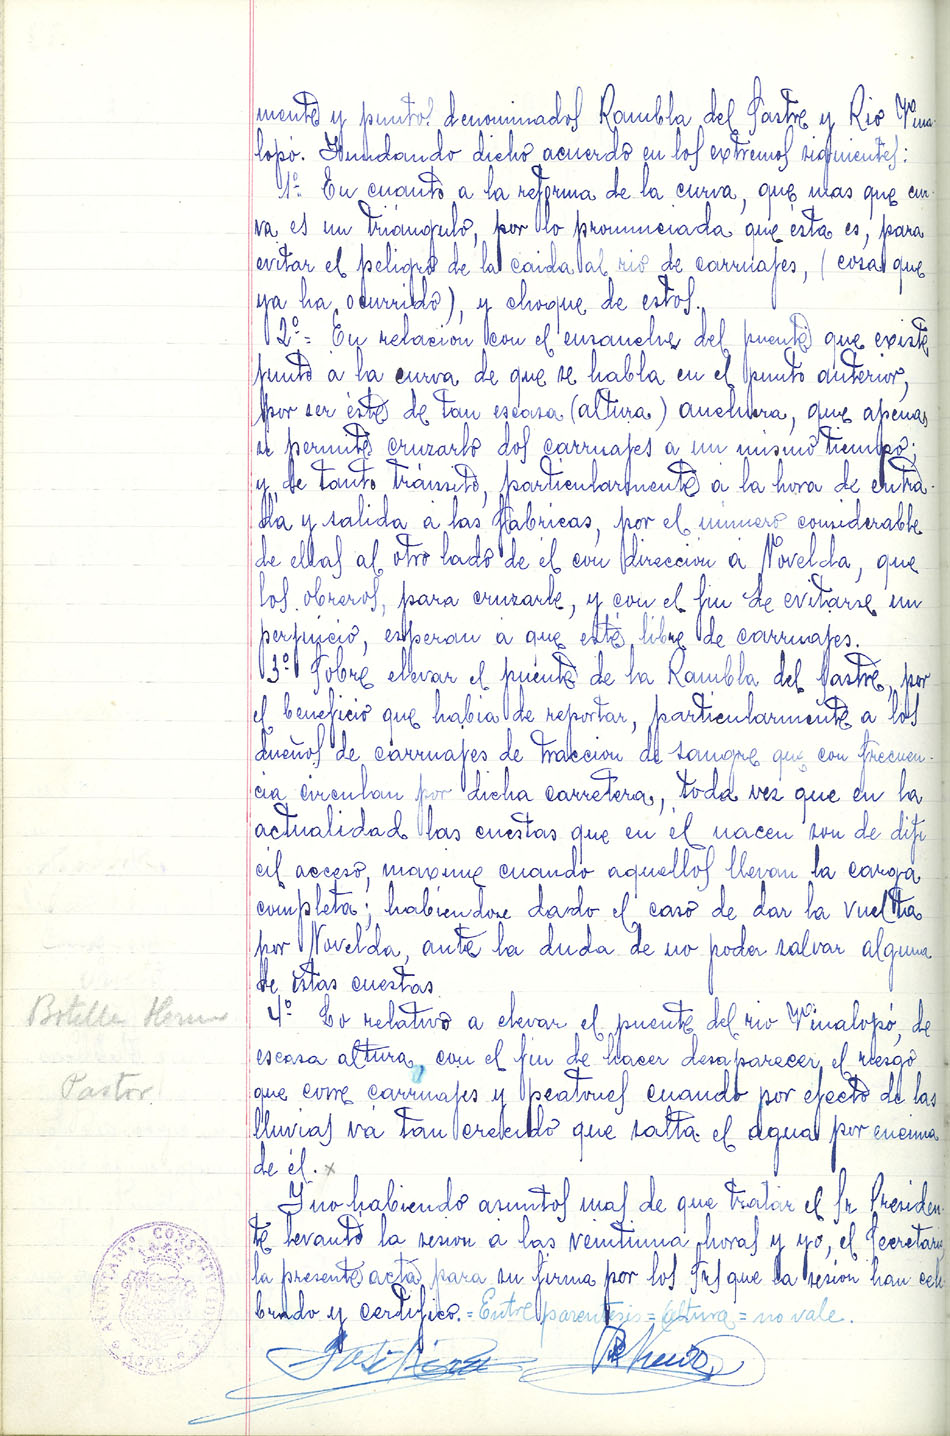 mente y puntos denominados Rambla del Sastre y Rio Vina-
lopó. Fundando dicho acuerdo en los extremos siguientes:
1º- En cuanto a la reforma de la curva, que mas que cur-
va es un triángulo, por lo pronunciada que ésta es, para
evitar el peligro de la caida al rio de carruajes, (cosa que
ya ha ocurrido), y choque de estos.
2º- En relacion con el ensanche del puente que existe
junto a la curva de que se habla en el punto anterior,
por ser éste de tan escasa (altura) anchura, que apenas
se permite cruzarlo dos carruajes a un mismo tiempo;
y de tanto tránsito, particularmente a la hora de entra-
da y salida a las fabricas, por el número considerable
de ellas al otro lado de él con direccion a Novelda, que
los obreros, para cruzarle, y con el fin de evitarse un
perjuicio, esperan a que esté libre de carruajes.
3º Sobre elevar el puente de la Rambla del Sastre, por
el beneficio que habia de reportar, particularmente a los
dueños de carruajes de traccion de sangre que con frecuen-
cia circulan por dicha carretera, toda vez que en la
actualidad las cuestas que en él nacen son de difi
cil acceso, maxime cuando aquellos llevan la carga
completa; habiendose dado el caso de dar la vuelta
por Novelda, ante la duda de no poder salvar alguna
de estas cuestas
4º Lo relativo a elevar el puente del rio Vinalopó, de
escasa altura, con el fin de hacer desaparecer el riesgo
que corre carruajes y peatones cuando por efecto de las
lluvias vá tan crecido que salta el agua por encima
de él. x
Y no habiendo asuntos mas de que tratar el Sr Presiden-
te levantó la sesion a las veintiuna horas y yo, el Secretario
la presente acta para su firma por los Srs que la sesion han cele
brado y certifico. = Entre parentesis = altura = no vale.
Botella Herma
Pastor
AYUNTAMº CONSTITUCIONAL
José